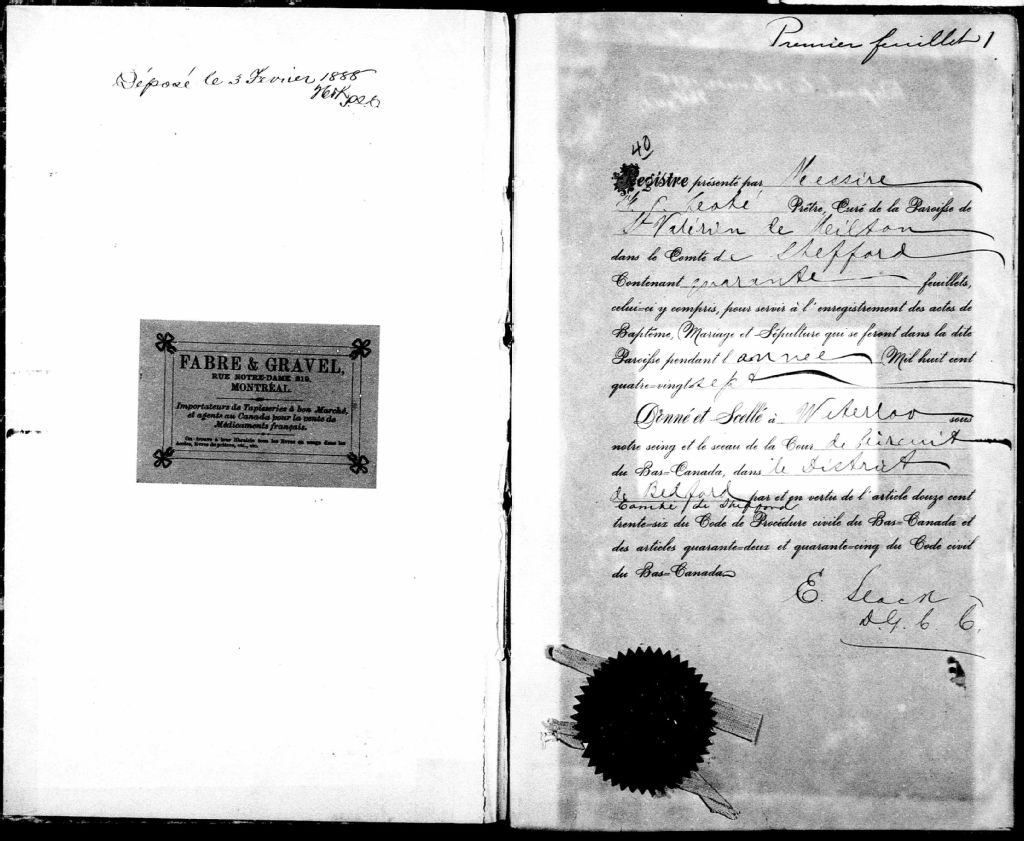 Déposé le 3 Fevrier 1888
FABRE & GRAVEL,
RUE NOTRE-DAME 219.
MONTRÉAL.
Importateurs de Tapisseries à bon Marché,
et agents au Canada pour la vente de
Médicaments français.
On trouve à leur librairie tous les livres en usage dans les
écoles, livres de prières, etc., etc.
Premier feuillet 1
40
Registre présenté par Messire
Prêtre, Curé de la Paroisse de
St Valérien de Milton
dans le Comté de Shefford
Contenant quarante feuillets,
celui-ci y compris, pour servir à l'enregistrement des actes de
Baptême, Mariage et Sépulture qui se feront dans la dite
Paroisse pendant l'année Mil huit cent
quatre-vingt sept
Donné et Scellé à Waterloo sous
notre seing et le sceau de la Cour de Circuit
du Bas-Canada, dans le District
de Bedford par et en vertu de l'article douze cent
Comté de Shefford
trente-six du Code de Procédure civile du Bas-Canada et
des articles quarante-deux et quarante-cinq du Code civil
du Bas-Canada
E. Slack
D.G.C.C.